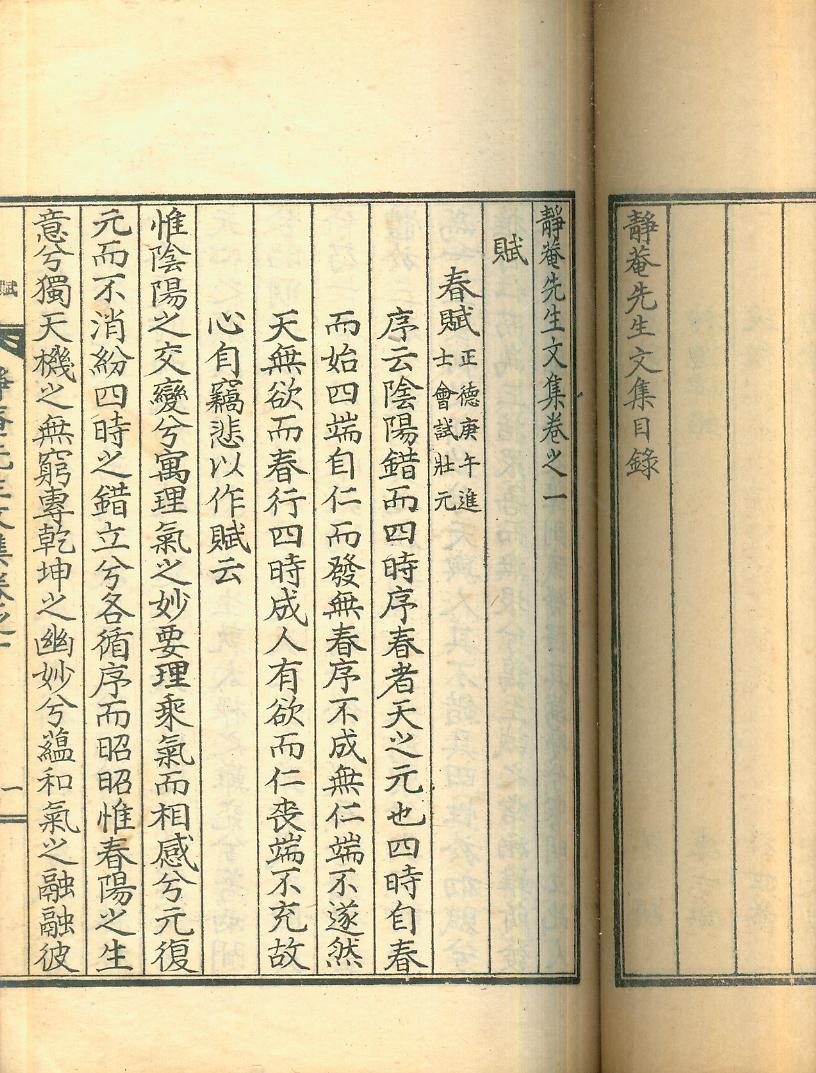 靜菴先生文集目錄
靜菴先生文集卷之一
賦
春賦 正德庚午進
士會試壯元
序云陰陽錯而四時序春者天之元也四時自春
而始四端自仁而發無春序不成無仁端不遂然
天無欲而春行四時成人有欲而仁喪端不充故
心自竊悲以作賦云
惟陰陽之交變兮寓理氣之妙要理乘氣而相感兮元復
元而不消紛四時之錯立兮各循序而昭昭惟春陽之生
意兮獨天機之無窮專乾坤之幽妙兮蘊和氣之融融彼
賦
靜菴先生文集卷之一
一